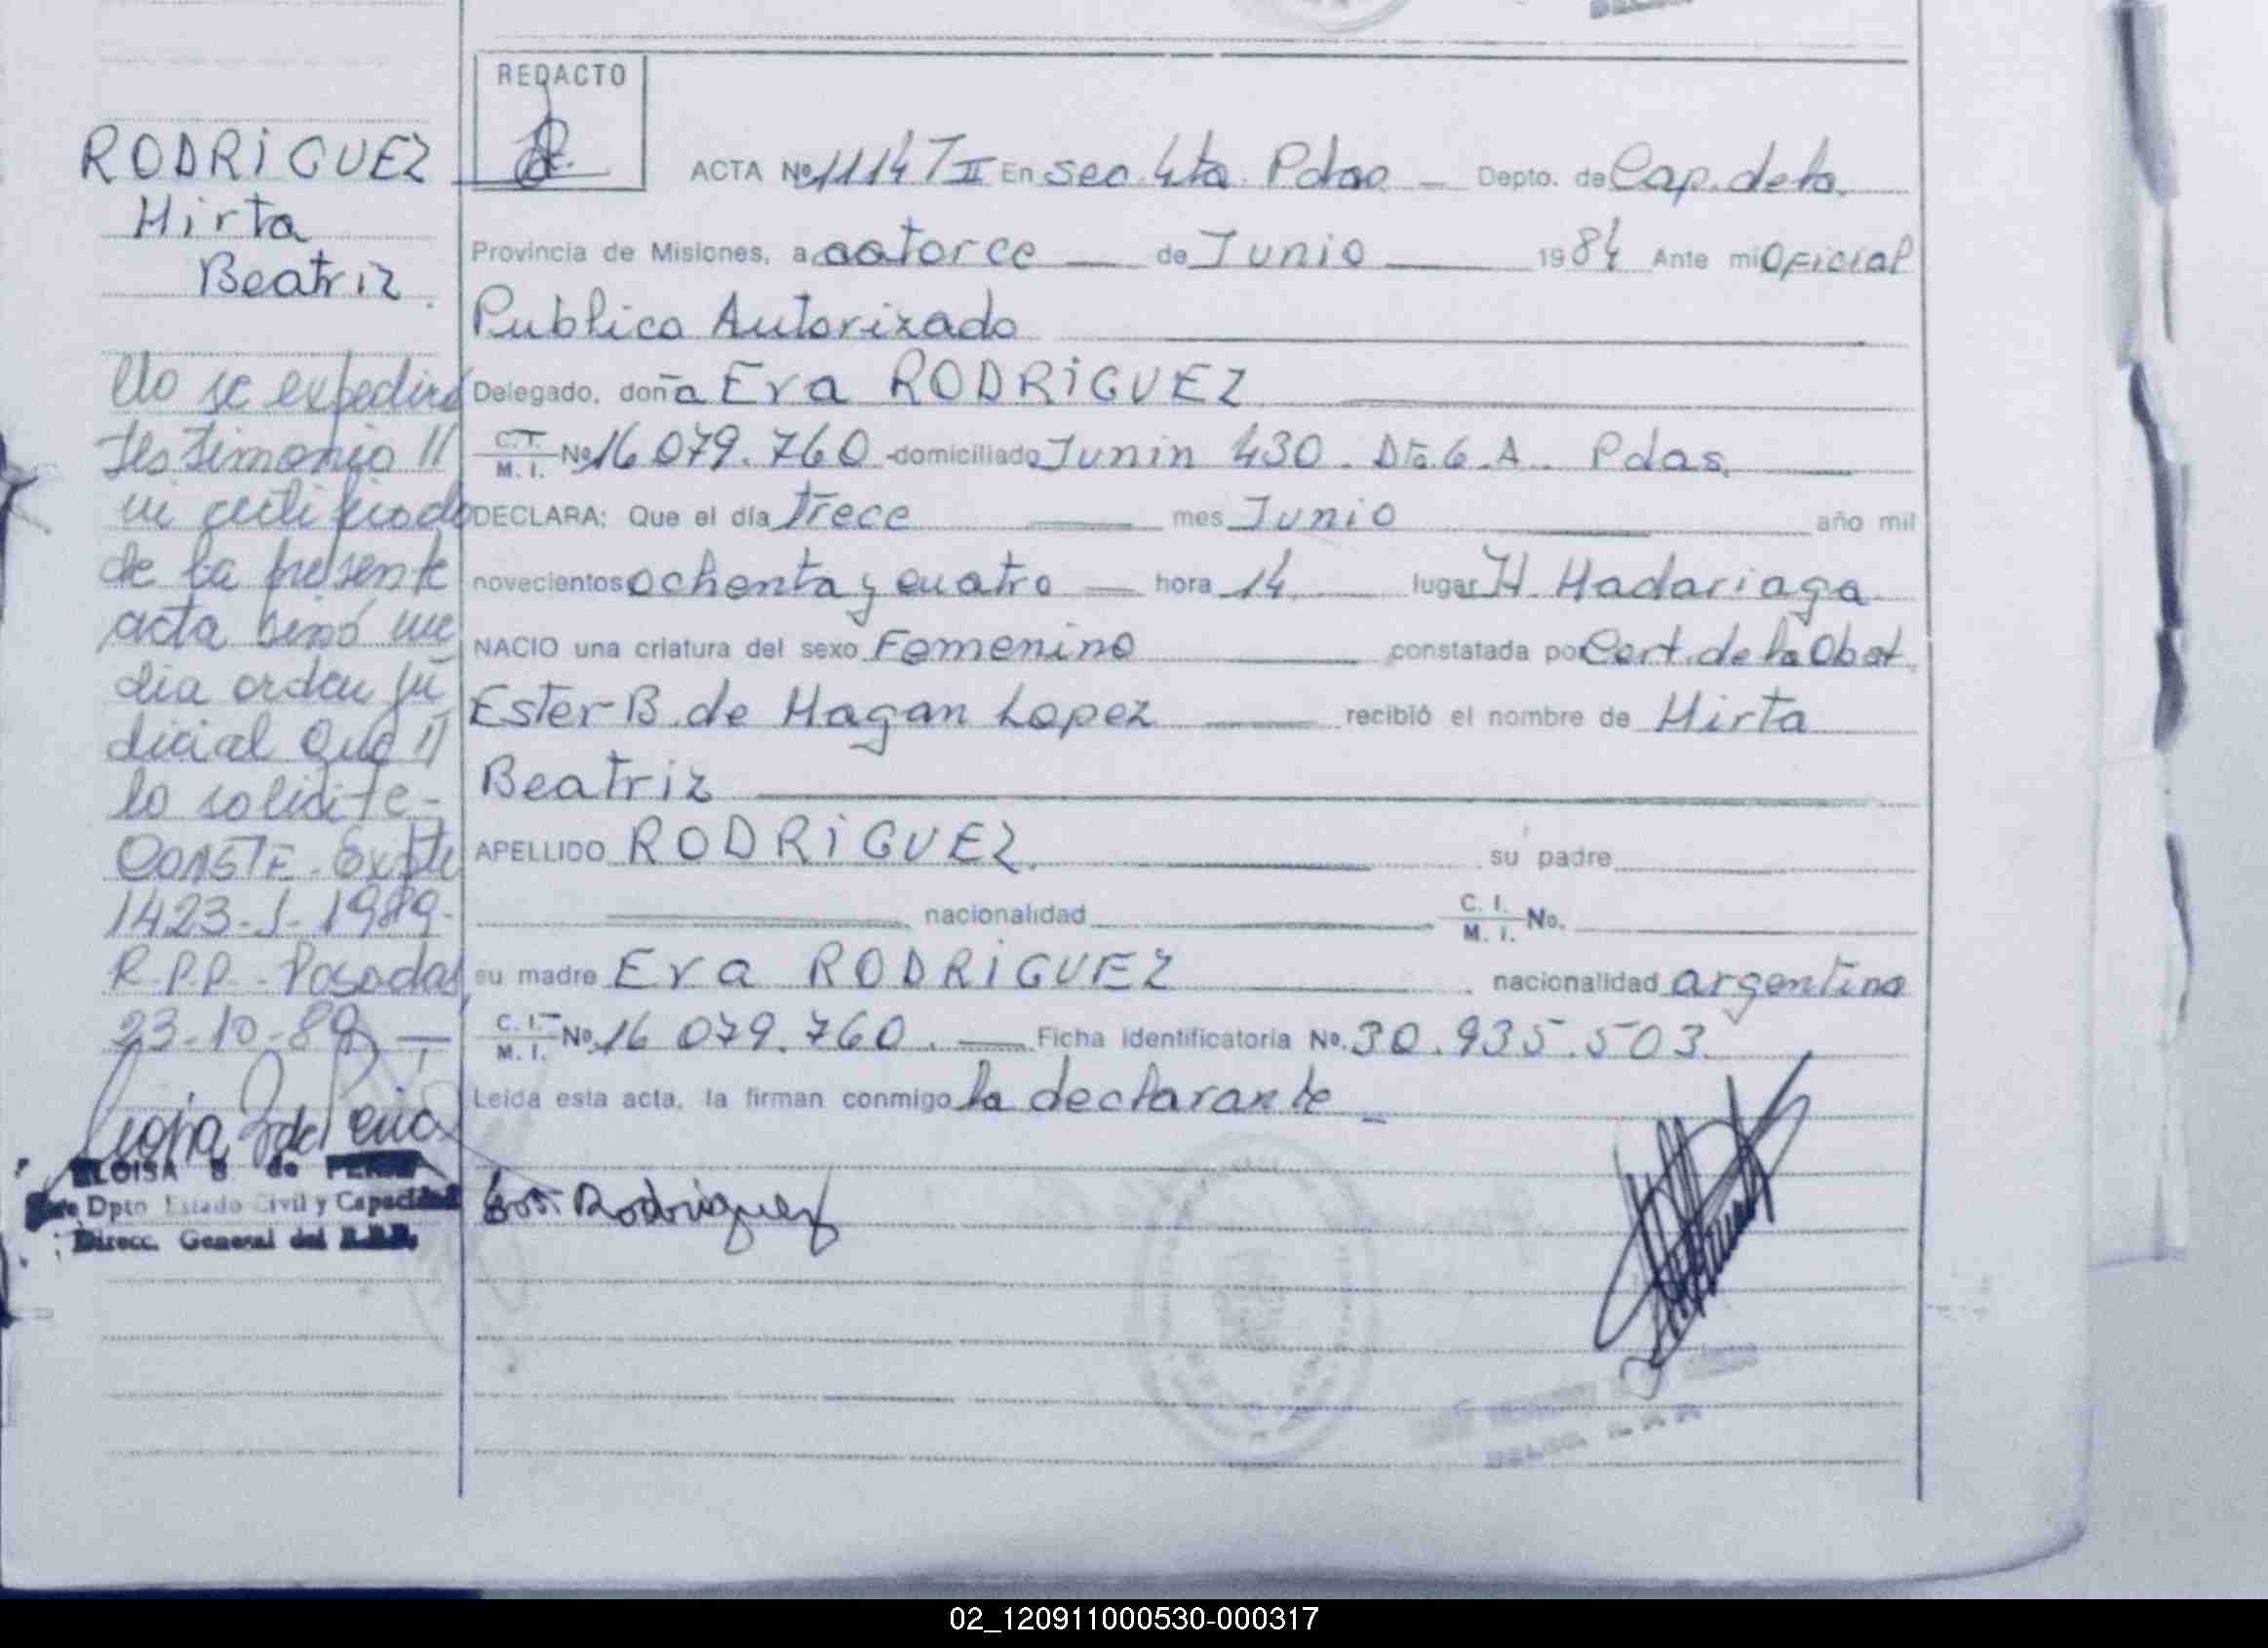 REDACTO
RODRIGUEZ
Hirta
Beatriz
ACTA Nº 1114 T II En Sec. 4ta. Pdas Depto. de Cap. de la
Provincia de Misiones, a catorce de Junio 1984 Ante mi Oficial
Publico Autorizado
Delegado, doña Eva RODRIGUEZ
C.I. M.I. Nº 16 079.760 domiciliado Junin 430. Dto. 6. A. Pdas.
DECLARA: Que el día trece mes Junio año mil
novecientos ochenta y cuatro hora 14 lugar H. Madariaga
NACIO una criatura del sexo Femenino constatada por Cert. de la Obst.
Ester B. de Hagan Lopez recibió el nombre de Hirta
Beatriz
APELLIDO RODRIGUEZ su padre
nacionalidad C. I. M. I. No.
su madre Eva RODRIGUEZ nacionalidad argentina
C. I. M. I. Nº 16 079.760. Ficha identificatoria Nº. 30.935.503
Leída esta acta, la firman conmigo la declarante
Rodriguez
No se expedirá
testimonio //
ni certificado
de la presente
acta sinó me
dia orden ju
dicial que //
lo solicite-
CONSTE. Expte
1423-J-1989-
R.P.P.- Posadas,
23-10-89
ELOISA B de
Dpto Estado Civil y Capacidad
Direcc. General del R.P.P.
02_120911000530-000317